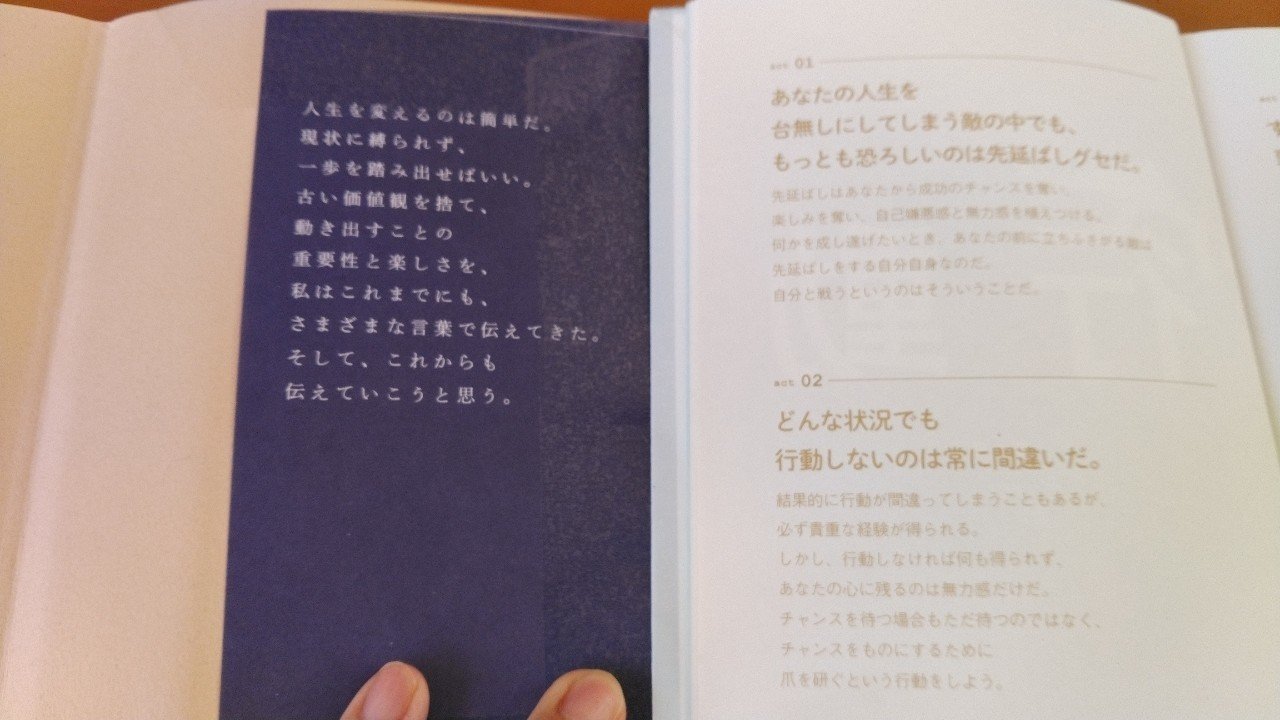 人生を変えるのは簡単だ。
現状に縛られず、
一歩を踏み出せばいい。
古い価値観を捨て、
動き出すことの
重要性と楽しさを、
私はこれまでにも、
さまざまな言葉で伝えてきた。
そして、これからも
伝えていこうと思う。
act 01
あなたの人生を
台無しにしてしまう敵の中でも、
もっとも恐ろしいのは先延ばしグセだ。
先延ばしはあなたから成功のチャンスを奪い、
楽しみを奪い、自己嫌悪感と無力感を植えつける。
何かを成し遂げたいとき、あなたの前に立ちふさがる敵は
先延ばしをする自分自身なのだ。
自分と戦うというのはそういうことだ。
act 02
どんな状況でも
行動しないのは常に間違いだ。
結果的に行動が間違ってしまうこともあるが、
必ず貴重な経験が得られる。
しかし、行動しなければ何も得られず、
あなたの心に残るのは無力感だけだ。
チャンスを待つ場合もただ待つのではなく、
チャンスをものにするために
爪を研ぐという行動をしよう。